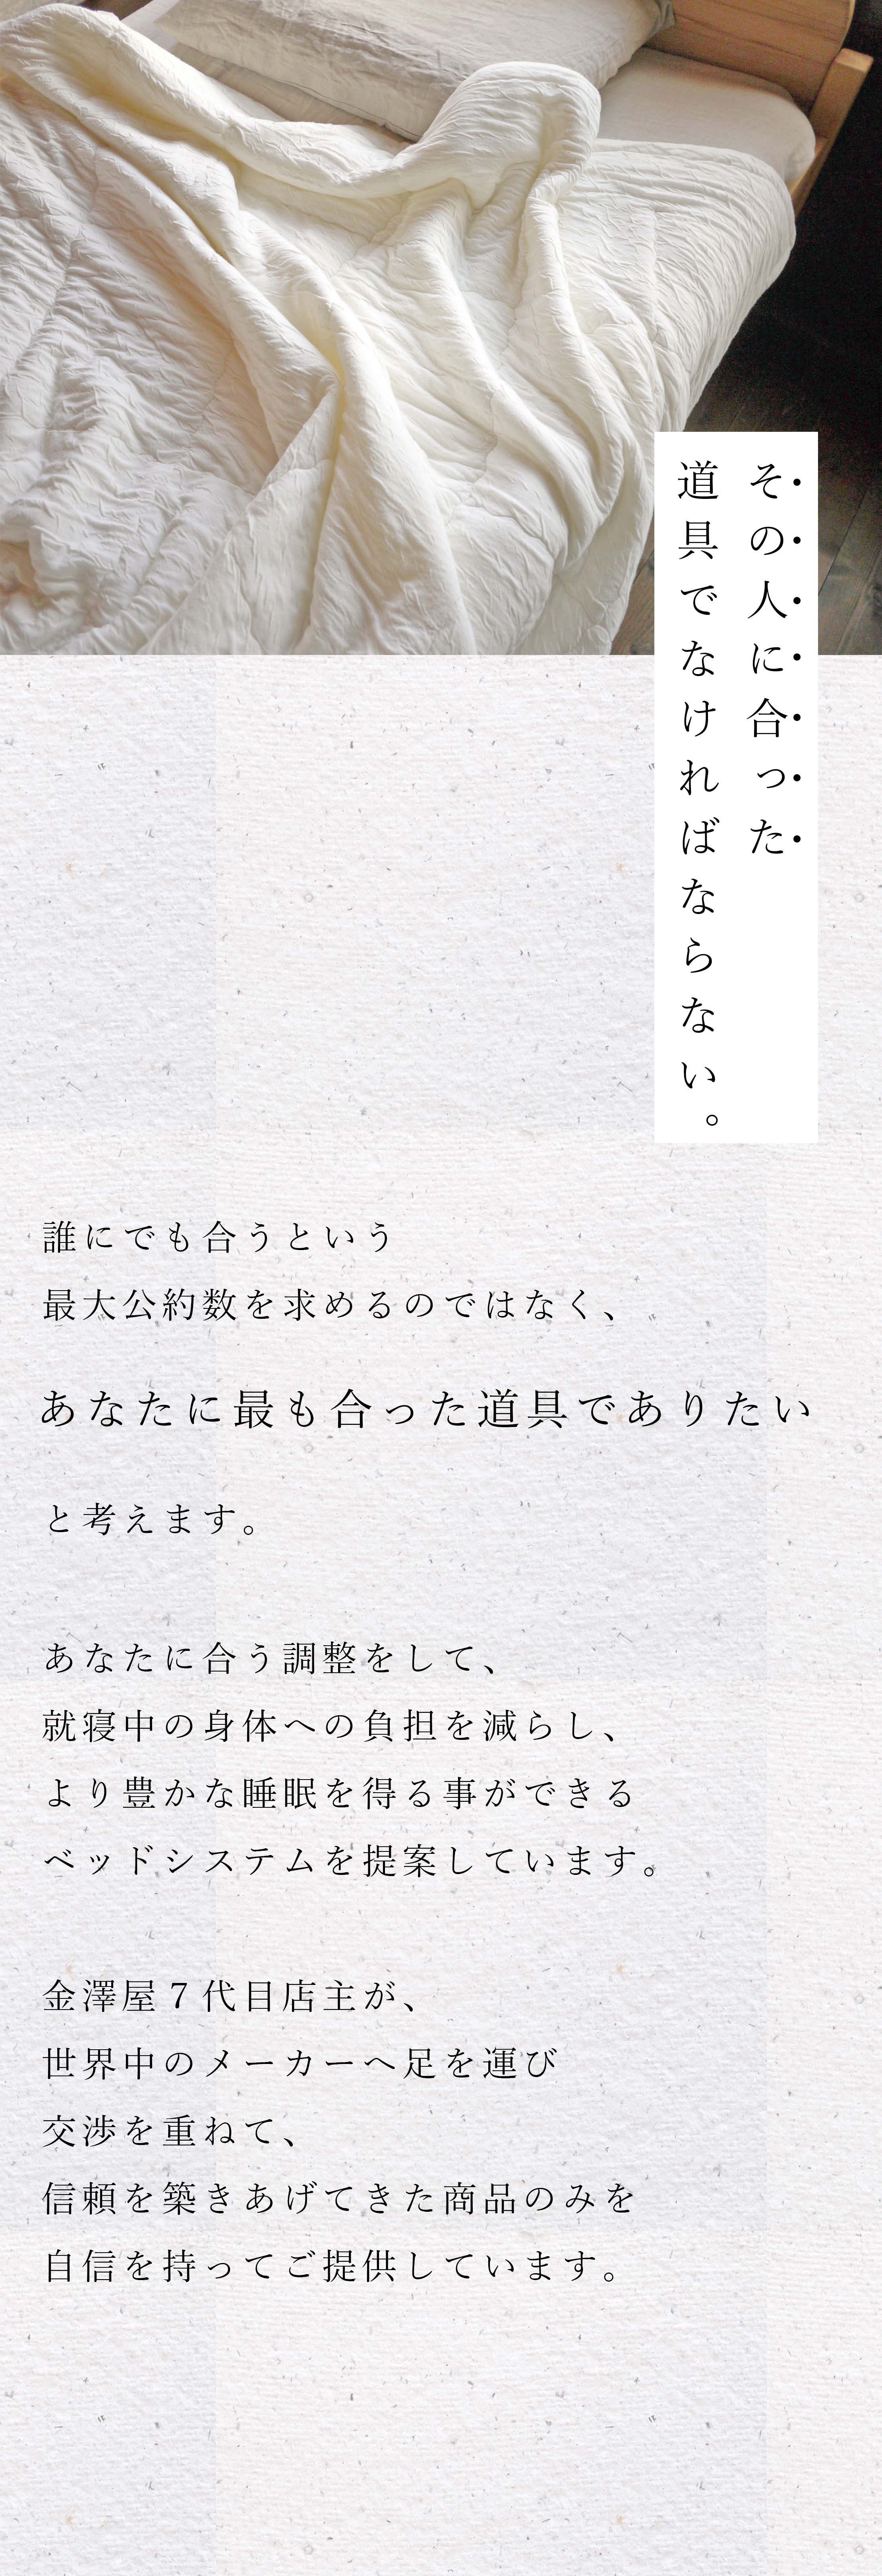 その人に合った
道具でなければならない。
誰にでも合うという
最大公約数を求めるのではなく、
あなたに最も合った道具でありたい
と考えます。
あなたに合う調整をして、
就寝中の身体への負担を減らし、
より豊かな睡眠を得る事ができる
ベッドシステムを提案しています。
金澤屋７代目店主が、
世界中のメーカーへ足を運び
交渉を重ねて、
信頼を築きあげてきた商品のみを
自信を持ってご提供しています。